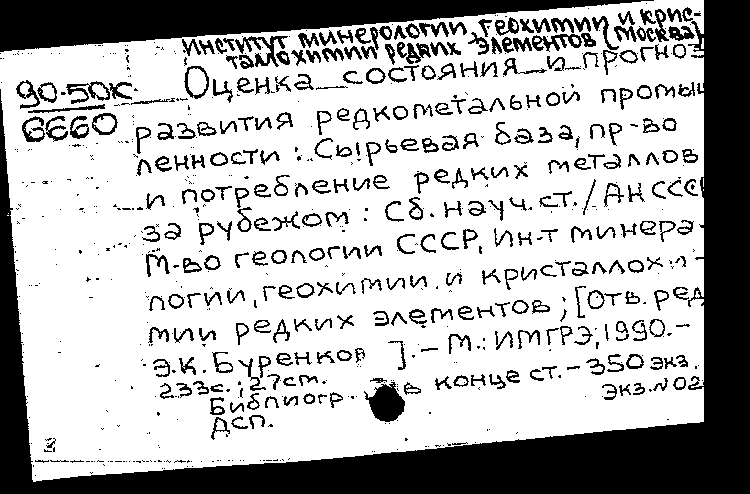 институт минерологии, геохимии и крис-
таллохимии редких элементов (Москва)
90-50К
6660
Оценка состояния и прогноз
развития редкометальной промыш
ленности: Сырьевая база, пр-во
и потребление редких металлов
за рубежом: Сб. науч. ст. / АН СССР
М-во геологии СССР, Ин-т минера-
логии, геохимии и кристаллохи-
мии редких элементов; [Отв. ред
Э.К. Буренков ]. - М.: ИМГРЭ, 1990. -
233с.; 27см.
Библиогр. в конце ст. - 350 экз.
Экз. N 02
ДСП.
3